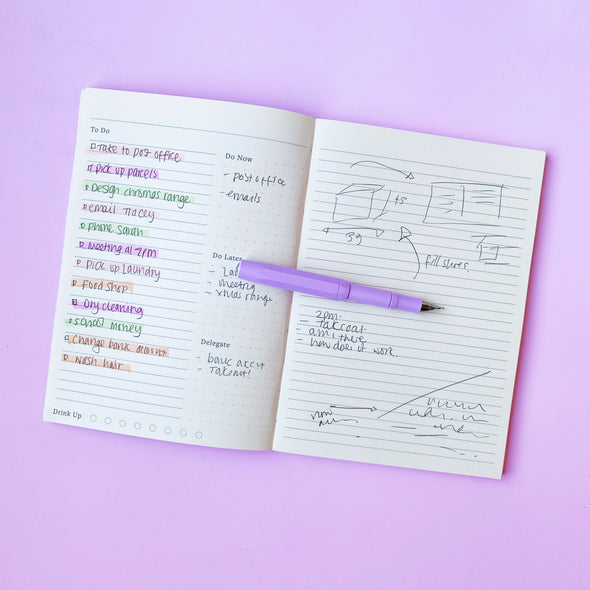 To Do
Take to post office
Pick up parcels
Design chrimas range
email Tracey
phone Sarah
Meeting at 2pm
Pick up laundry
Food shop
Dry cleaning
school money
Change bank
Wash hair
Drink Up
Do Now
- post office
- emails
Do Later
- meeting
- xmas range
Delegate
- bank
- Takeout!
45
39
fill stores.
2pm.
- am i there
- how does it work.